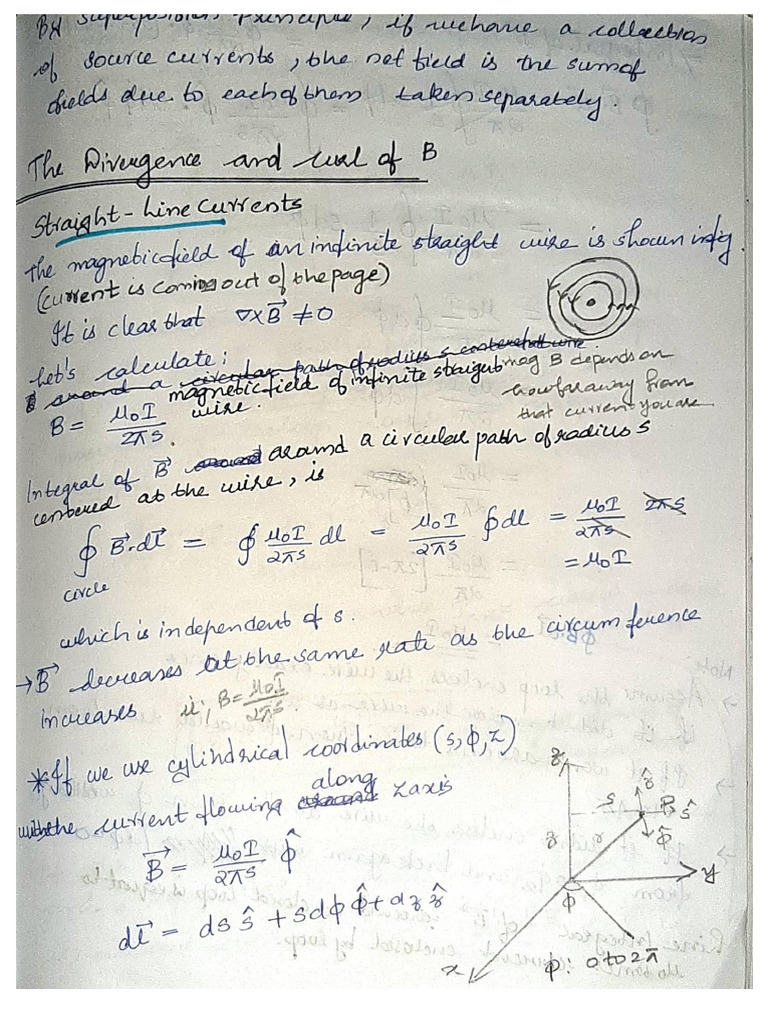 By superposition Principle, if we have a collection
of source currents, the net field is the sum of
fields due to each of them taken separately.
The Divergence and curl of B
Straight-Line Currents
The magnetic field of an infinite straight wire is shown in fig.
(current is coming out of the page)
It is clear that ∇×B⃗ ≠ 0
Let's calculate:
around a circular path of radius s centered at the wire
magnetic field of infinite straight wire.
B = μ₀I / 2πs.
mag B depends on
how far away from
that current you are
Integral of B⃗ around a circular path of radius s
centered at the wire, is
∮ B⃗.dl⃗ = ∮ μ₀I/2πs dl = μ₀I/2πs ∮dl = μ₀I/2πs 2πs
circle
= μ₀I
which is independent of s.
→ B⃗ decreases at the same rate as the circumference
increases ie; B = μ₀I/2πs
*If we use cylindrical coordinates (s, ϕ, z)
with the current flowing along z axis
B⃗ = μ₀I/2πs ϕ̂
dl⃗ = ds ŝ + sdϕ ϕ̂ + dz ẑ
z
s
ẑ
ŝ
ϕ̂
z
y
ϕ
x
ϕ: 0 to 2π